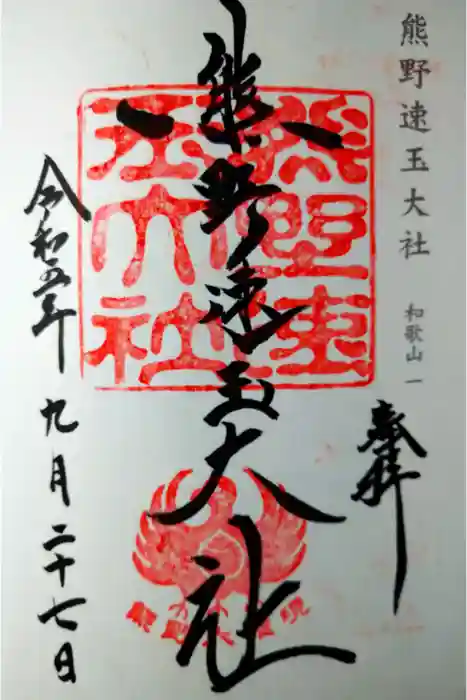 熊野速玉大社 和歌山 一
奉拝
熊野速玉大社
熊野速玉大社
令和五年 九月二十七日